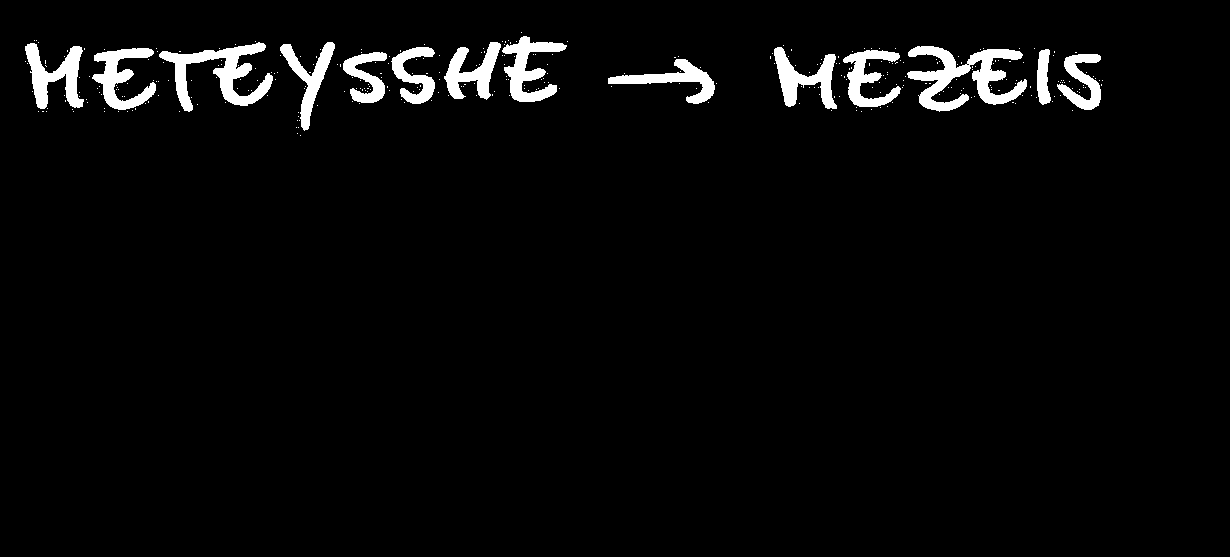 METEYSSHE → MEZEIS